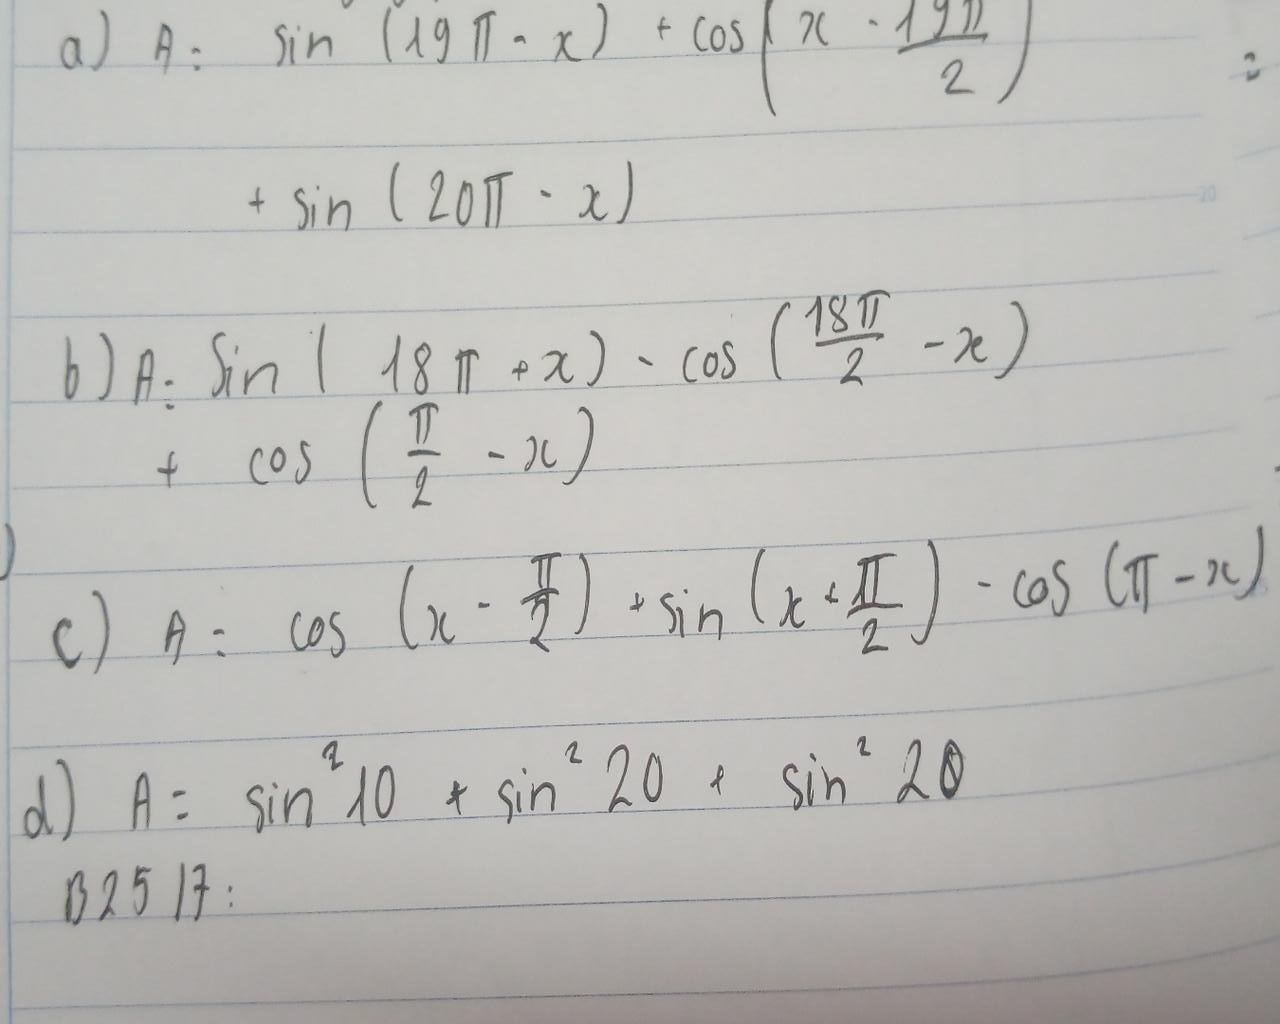 a) A = sin (19π - x) + cos(x - 19π/2)
+ sin (20π - x)
b) A = Sin( 18π + x) - cos (18π/2 - x)
+ cos (π/2 - x)
c) A = cos (x - π/2) + sin (x + π/2) - cos (π - x)
d) A = sin² 10 + sin² 20 + sin² 20
B25 17: